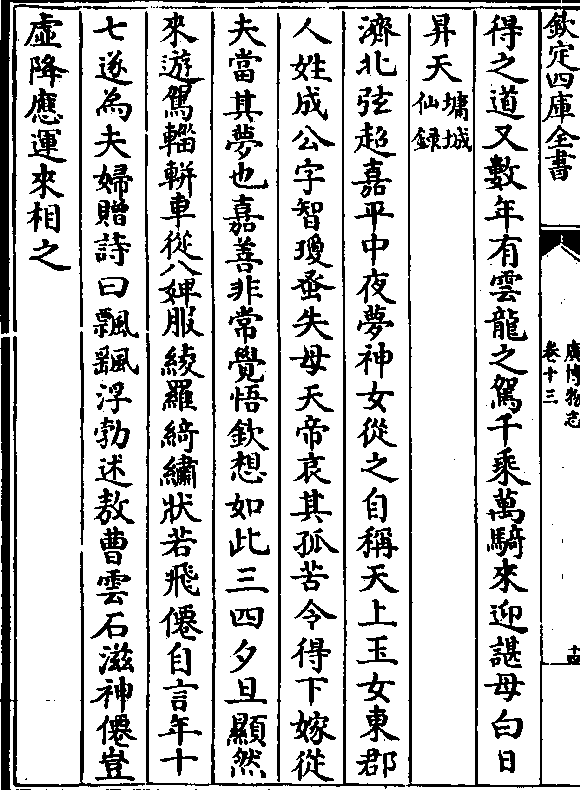 欽定四庫全書
廣博物志
卷十三
十四
得之道又數年有雲龍之駕千乘萬騎來迎諶母白日
昇天墉城仙録
濟北弦超嘉平中夜夢神女從之自稱天上玉女東郡
人姓成公字智瓊蚤失母天帝哀其孤苦令得下嫁從
夫當其夢也嘉善非常覺悟欽想如此三四夕旦顯然
來遊駕輜軿車從八婢服綾羅綺繡狀若飛僊自言年十
七遂為夫婦贈詩曰飄颻浮勃述敖曹雲石滋神僊豈
虛降應運來相之